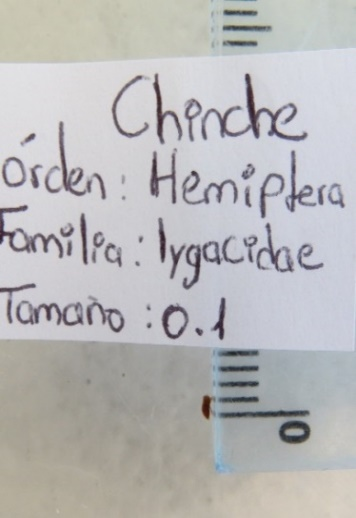 Chinche
órden: Hemiptera
Familia: lygacidae
Tamaño: 0.1
0